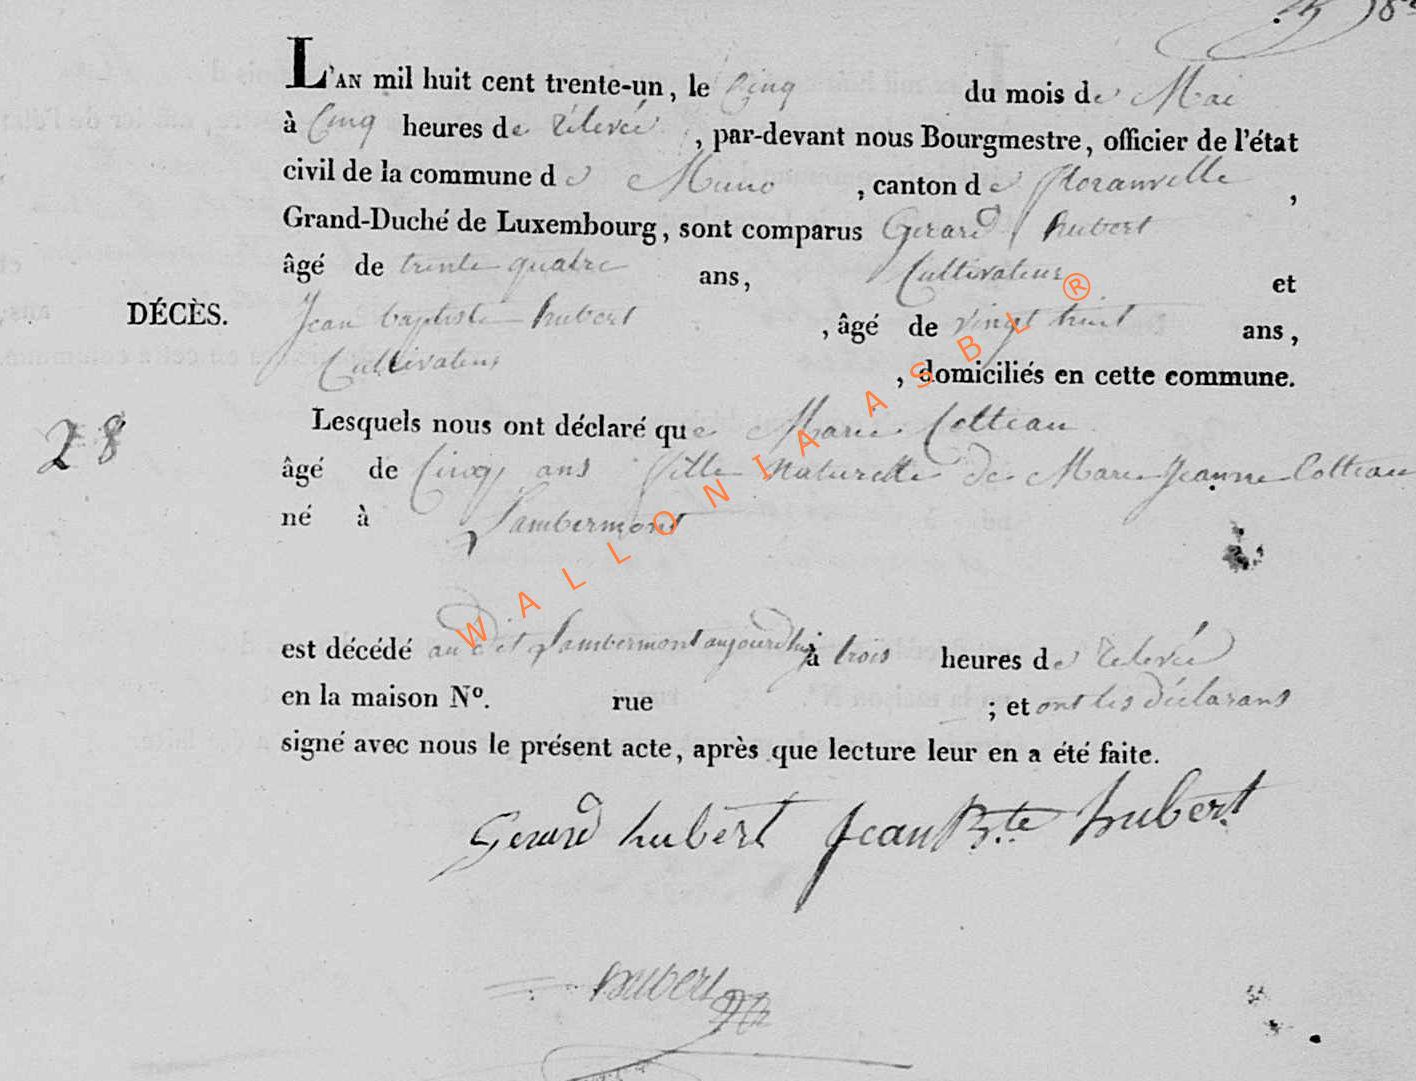 L'AN mil huit cent trente-un, le Cinq du mois de Mai
à Cinq heures de rélevée, par-devant nous Bourgmestre, officier de l'état
civil de la commune de Muno, canton de floranville,
Grand-Duché de Luxembourg, sont comparus Gerard hubert
âgé de trente quatre ans, Cultivateur et
DÉCÈS. Jean baptiste hubert, âgé de vingt huit ans,
Cultivateur, domiciliés en cette commune.
Lesquels nous ont déclaré que Marie Cotteau
28 âgé de Cinq ans fille naturelle de Marie Jeanne Cotteau
né à Lambermont
est décédé au dit Lambermont aujourd'hui à trois heures de relevée
en la maison Nº. rue ; et ont les déclarans
signé avec nous le présent acte, après que lecture leur en a été faite.
Gerard hubert Jean Bte hubert
hubert
WALLONIA ASBL ®